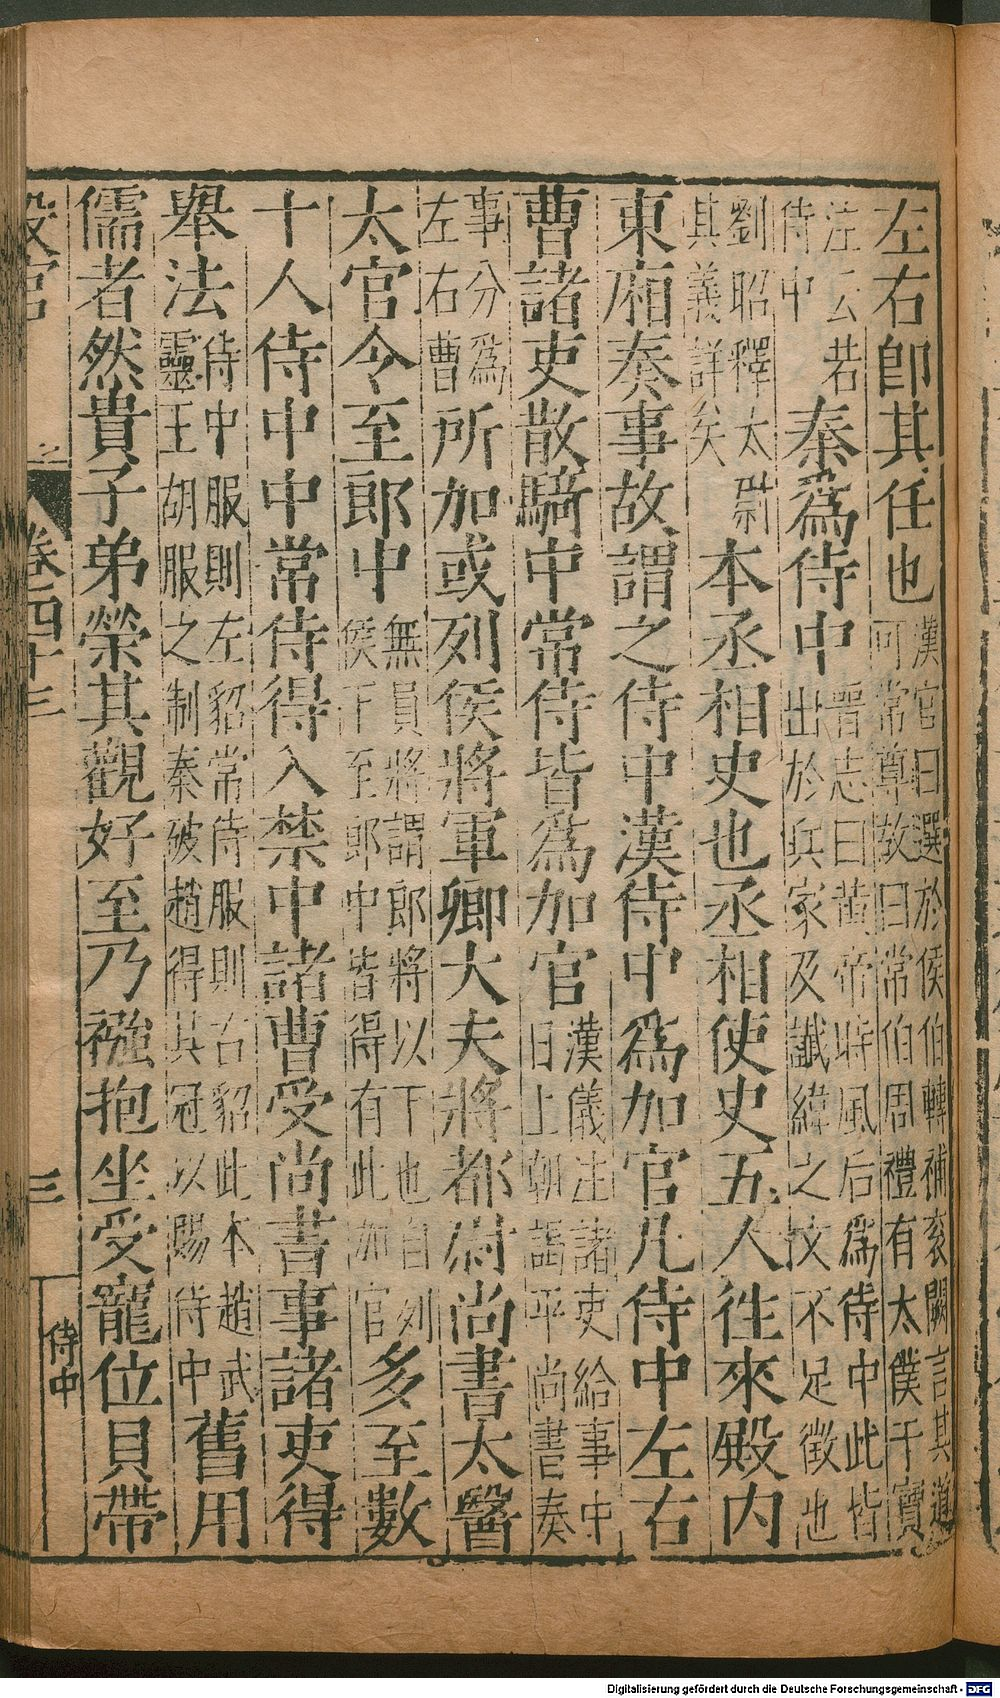 左右卽其任也漢官曰選於侯伯轉補衮闕言其道可常尊故曰常伯周禮有太僕干寶
注云若侍中秦爲侍中晉志曰黃帝時風后爲侍中此皆出於兵家及讖緯之文不足徵也
劉昭釋太尉其義詳矣本丞相史也丞相使史五人往來殿内
東廂奏事故謂之侍中漢侍中爲加官凡侍中左右
曹諸吏散騎中常侍皆爲加官漢儀注諸吏給事中日上朝謁平尚書奏
事分爲左右曹所加或列侯將軍卿大夫將都尉尚書太醫
太官令至郎中無員將謂郎將以下也自列侯下至郎中皆得有此加官多至數
十人侍中中常侍得入禁中諸曹受尚書事諸吏得
舉法侍中服則左貂常侍服則右貂此本趙武靈王胡服之制秦破趙得其冠以賜侍中舊用
儒者然貴子弟榮其觀好至乃襁抱坐受寵位貝帶
設官 卷四十三 三 侍中
Digitalisierung gefördert durch die Deutsche Forschungsgemeinschaft - DFG